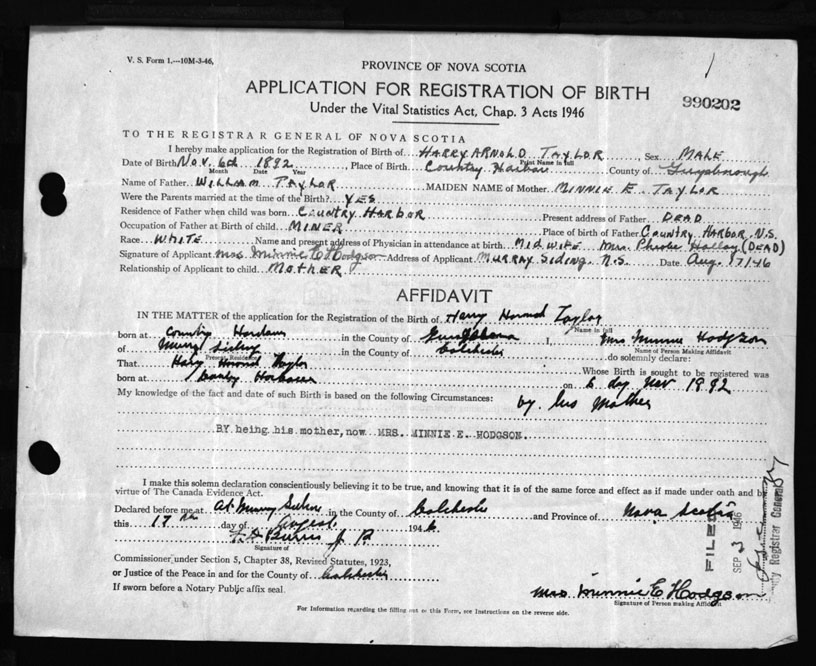 V. S. Form 1.—10M-3-46,
PROVINCE OF NOVA SCOTIA
APPLICATION FOR REGISTRATION OF BIRTH
990202
Under the Vital Statistics Act, Chap. 3 Acts 1946
TO THE REGISTRAR GENERAL OF NOVA SCOTIA
I hereby make application for the Registration of Birth of HARRY ARNOLD TAYLOR, Sex MALE
Print Name in full
Date of Birth Nov. 6th 1892, Place of Birth Country Harbour County of Guysborough
Month Date Year
Name of Father WILLIAM TAYLOR MAIDEN NAME of Mother MINNIE E TAYLOR
Were the Parents married at the time of the Birth? YES
Residence of Father when child was born COUNTRY HARBOR Present address of Father DEAD
Occupation of Father at Birth of child MINER Place of birth of Father COUNTRY HARBOR, N.S.
Race WHITE Name and present address of Physician in attendance at birth MIDWIFE Mrs. Phoebe (DEAD)
Signature of Applicant Mrs. Minnie E Hodgson Address of Applicant MURRAY SIDING, N.S. Date Aug. 17/46
Relationship of Applicant to child MOTHER
AFFIDAVIT
IN THE MATTER of the application for the Registration of Birth of Harry Taylor
Name in full
born at Country in the County of I, Mrs Minnie Hodgson
Name of Person Making Affidavit
of Murry Siding in the County of Colchester do solemnly declare:
Present Residence
That Harry Taylor Whose Birth is sought to be registered was
born at on 6 day Nov 1892
My knowledge of the fact and date of such Birth is based on the following Circumstances: by his Mother
BY being his mother, now MRS. MINNIE E. HODGSON.
I make this solemn declaration conscientiously believing it to be true, and knowing that it is of the same force and effect as if made under oath and by
virtue of The Canada Evidence Act.
Declared before me at At Murry in the County of Colchester and Province of Nova Scotia
this 17 th day of August 1946
Burris J. P.
Signature of
Commissioner under Section 5, Chapter 38, Revised Statutes, 1923,
or Justice of the Peace in and for the County of Colchester
If sworn before a Notary Public affix seal.
Mrs Minnie E Hodgson
Signature of Person making Affidavit
For Information regarding the filling out of this Form, see Instructions on the reverse side.
FILED
SEP 3 1946
Deputy Registrar General